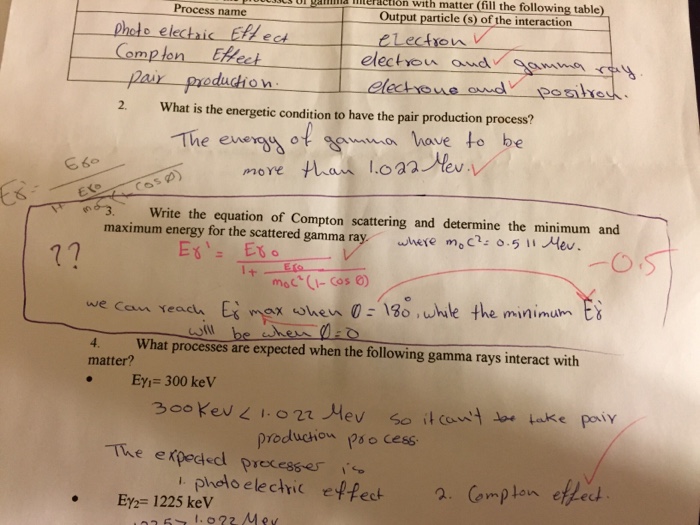 gamma interaction with matter (fill the following table)
Process name
Output particle (s) of the interaction
photo electric Effect
electron
Compton Effect
electron and gamma ray.
pair production.
electrons and positron.
2. What is the energetic condition to have the pair production process?
The energy of gamma have to be
more than 1.022 Mev.
Eγ = Eγ0
1+ Eγ0
m0c²(1-cosØ)
3. Write the equation of Compton scattering and determine the minimum and
maximum energy for the scattered gamma ray.
where m0c²= 0.511 Mev.
??
Eγ' = Eγ0
1+ Eγ0
m0c²(1-cosθ)
-0.5
we can reach Eγ' max when Ø = 180°, while the minimum Eγ'
will be when Ø=0
4. What processes are expected when the following gamma rays interact with
matter?
• Eγ1= 300 keV
300 kev < 1.022 Mev so it can't take pair
production process.
The expected processes is
1. photoelectric effect 2. Compton effect.
• Eγ2= 1225 keV
1.022 Mev